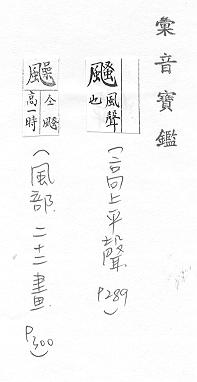 彙音寶鑑
颾 風聲也
(高上平聲 P289)
仝颾 高一時
(風部 二十二畫 P300)